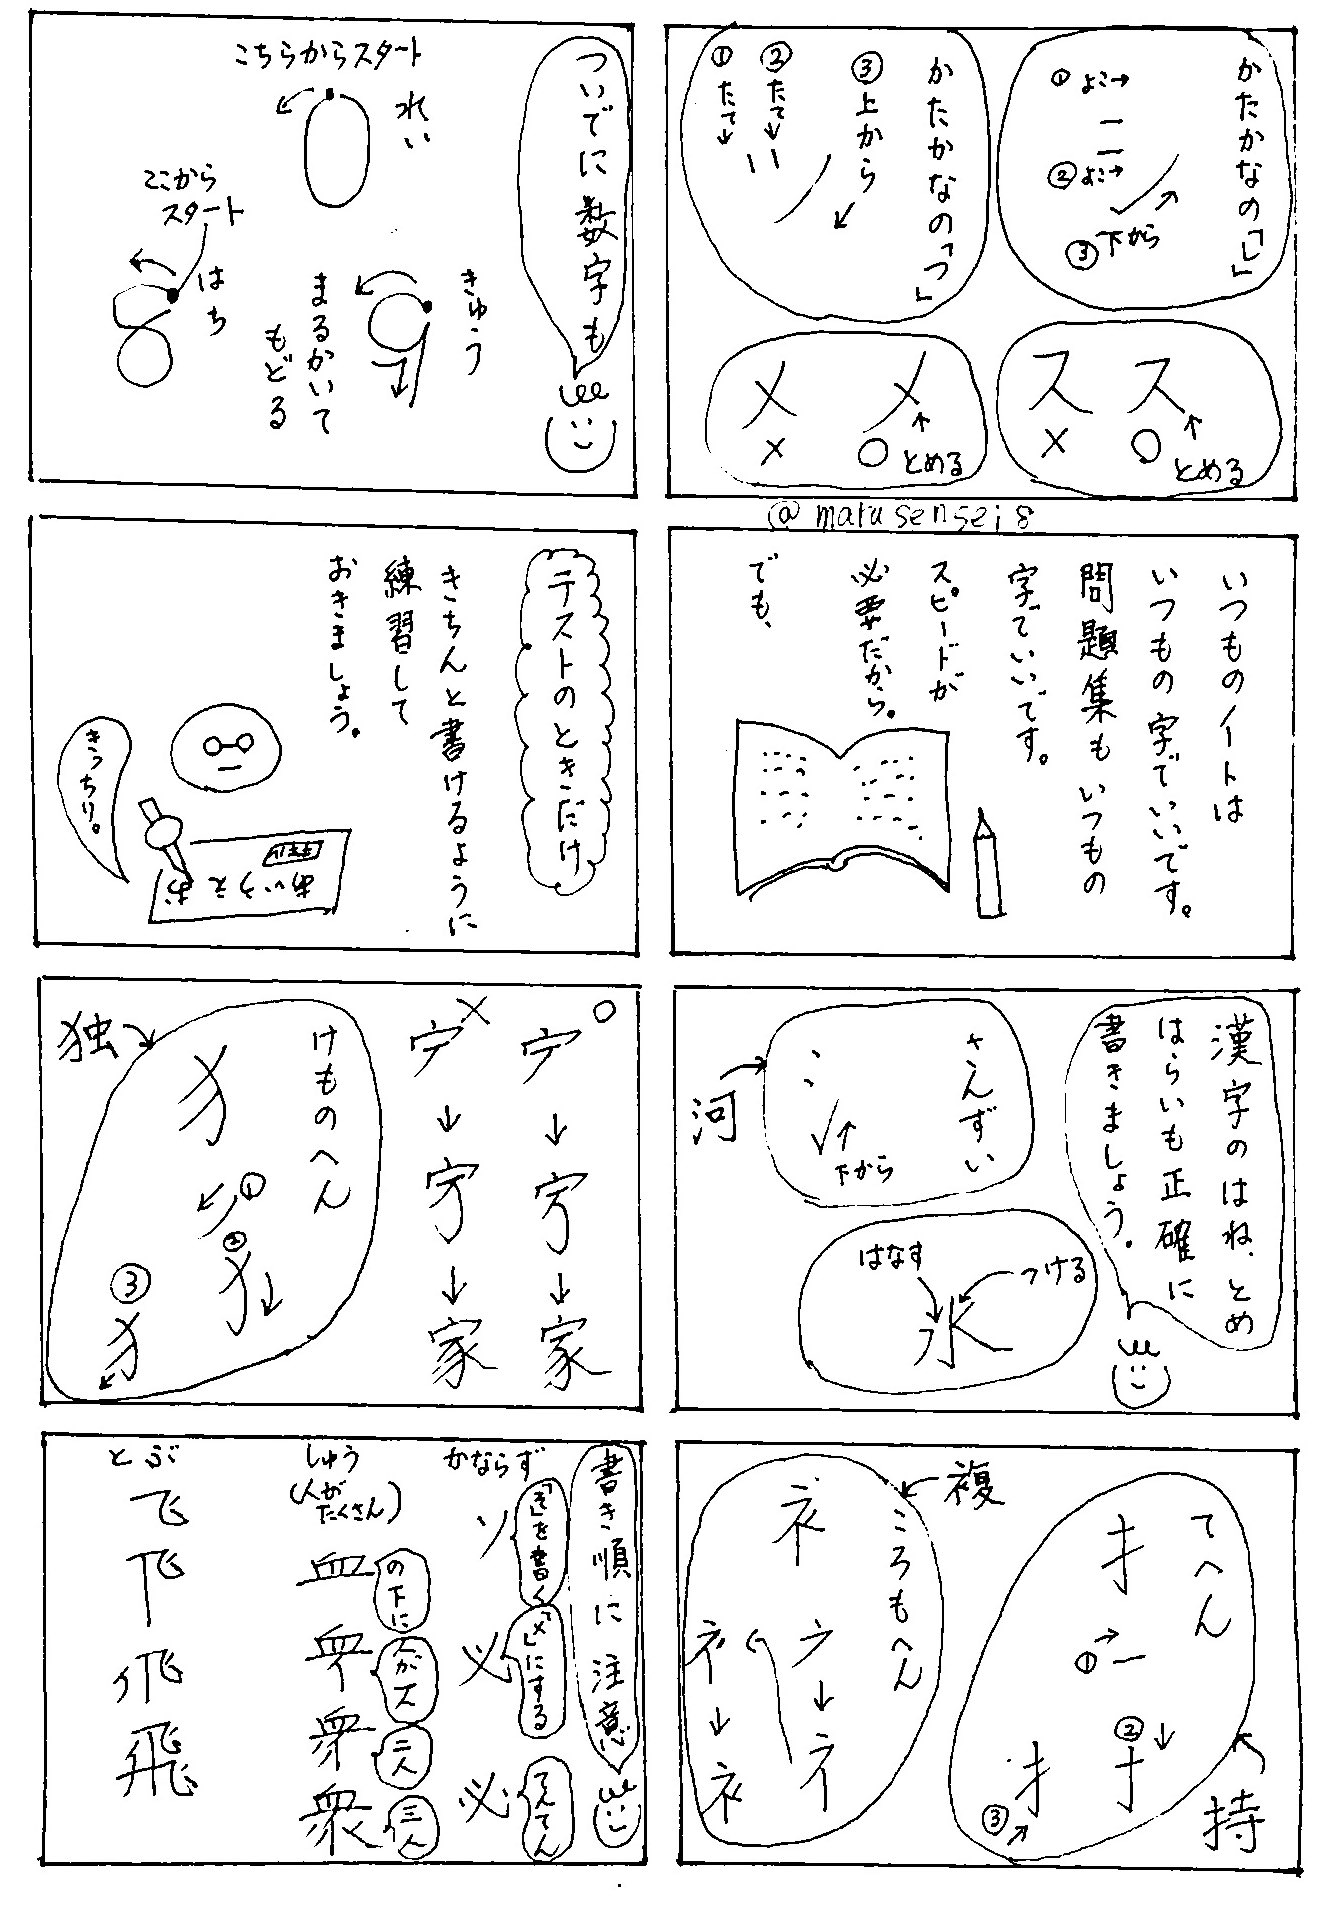 かたかなの「し」
①よこ→
②よこ→
③下から
かたかなの「つ」
③上から
②たて→
①たて→
ス
○
とめる
ス
×
メ
○
とめる
メ
×
ついでに数字も
こちらからスタート
れい
きゅう
まるかいて
もどる
ここから
スタート
はち
@marusensei8
いつものノートは
いつもの字でいいです。
問題集もいつもの
字でいいです。
スピードが
必要だから。
でも、
テストのときだけ
きちんと書けるように
練習して
おきましょう。
きっちり。
あいうえお
漢字のはね、とめ
はらいも正確に
書きましょう。
さんずい
下から
河
はなす
つける
氷
○
×
家
家
けものへん
独
①
②
③
てへん
扌
①
②
③
持
ころもへん
複
書き順に注意
かならず
「そ」を書く
ソ
「メ」にする
必
てんてん
しゅう
(人が
たくさん)
血
の下に
人が一人
二人
衆
三人
とぶ
飛